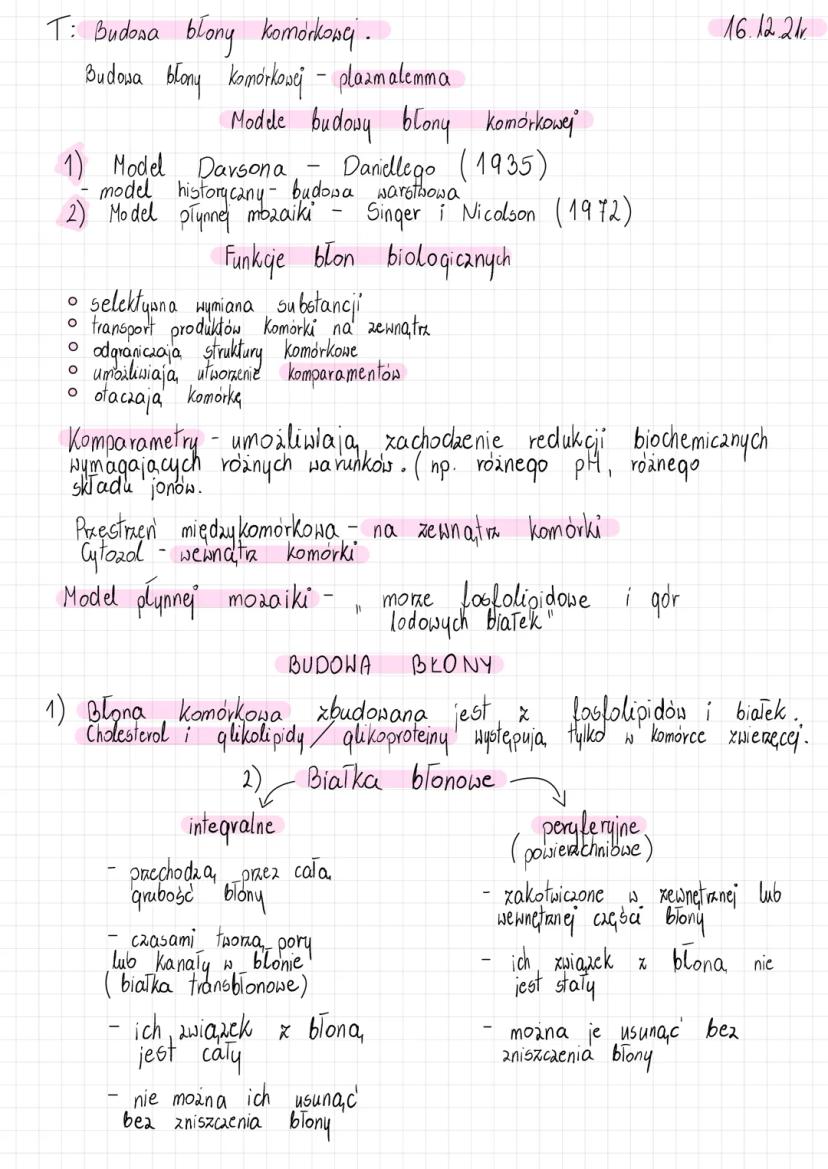 T: Budowa błony komórkowej. 16.12.21r.
Budowa błony komórkowej - plazmalemma
Modele budowy błony komórkowej
1) Model Davsona - Daniellego (1935)
- model historyczny - budowa warstwowa
2) Model płynnej mozaiki - Singer i Nicolson (1972)
Funkcje błon biologicznych
○ selektywna wymiana substancji
○ transport produktów komórki na zewnątrz
○ odgraniczają struktury komórkowe
○ umożliwiają utworzenie komparamentów
○ otaczają komórkę
Komparametry - umożliwiają zachodzenie redukcji biochemicznych
wymagających różnych warunków. (np. różnego pH, różnego
składu jonów.
Przestrzeń międzykomórkowa - na zewnątrz komórki
Cytozol - wewnątrz komórki
Model płynnej mozaiki - „ morze fosfolipidowe i gór
lodowych białek"
BUDOWA BŁONY
1) Błona komórkowa zbudowana jest z fosfolipidów i białek.
Cholesterol i glikolipidy / glikoproteiny występują tylko w komórce zwierzęcej.
2) Białka błonowe
integralne
- przechodzą przez całą
grubość błony
- czasami tworzą pory
lub kanały w błonie
(białka transbłonowe)
- ich związek z błoną
jest cały
- nie można ich usunąć
bez zniszczenia błony
peryferyjne
(powierzchniowe)
- zakotwiczone w zewnętrznej lub
wewnętrznej części błony
- ich związek z błoną nie
jest stały
- można je usunąć bez
zniszczenia błony